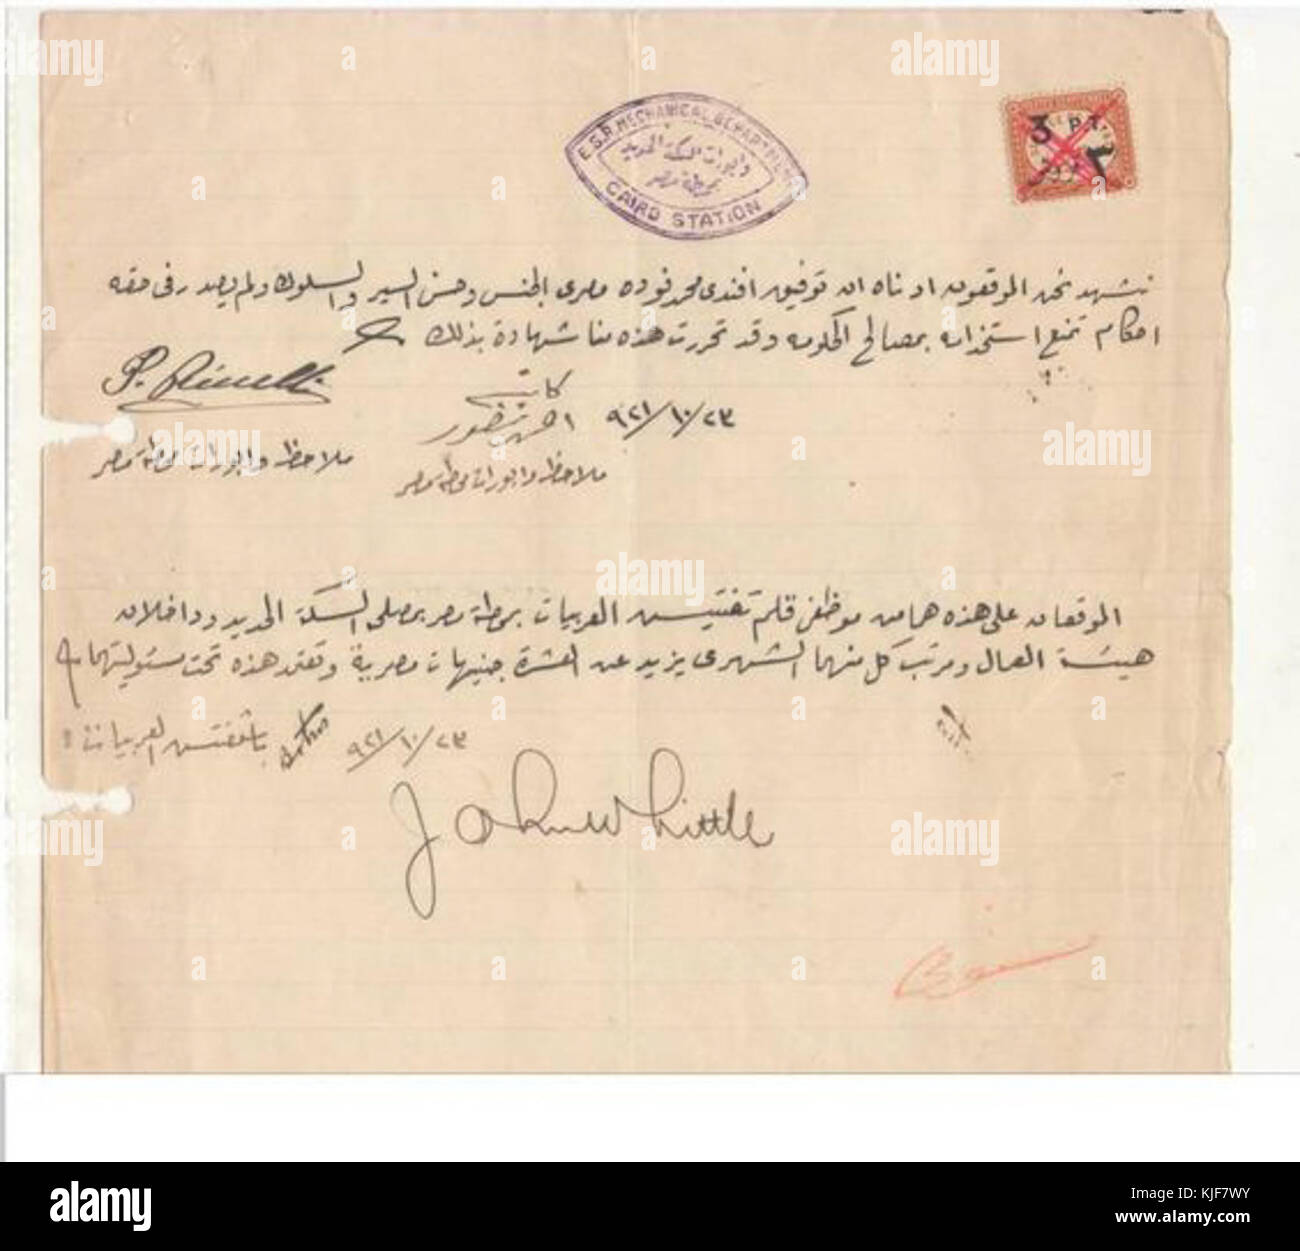 E.S.R. MECHANICAL DEPARTMENT
وابورات السكة الحديد
بمحطة مصر
CAIRO STATION
3 P.T.
٣
نشهد نحن الموقعون ادناه ان توفيق افندى محمد فوده مصرى الجنس وحسن السير والسلوك ولم يصدر فى حقه
احكام تمنع استخدامه بمصالح الحكومه وقد تحررت هذه منا شهادة بذلك
P. Rinelli
كاتبه
٢٣/١٠/٩٢١
ملاحظ وابورات محطة مصر
ملاحظ وابورات محطة مصر
الموقعان على هذه هما من موظفى قلم تفتيش العربيات بمحطة مصر بمصلحة السكة الحديد وداخلان
هيئة العمال ومرتب كل منهما الشهرى يزيد عن العشرة جنيهات مصرية وتعتمد هذه تحت مسئوليتهما
٢٣/١٠/٩٢١
باشمفتش العربيات
John Whittle
alamy
Image ID: KJF7WY
www.alamy.com